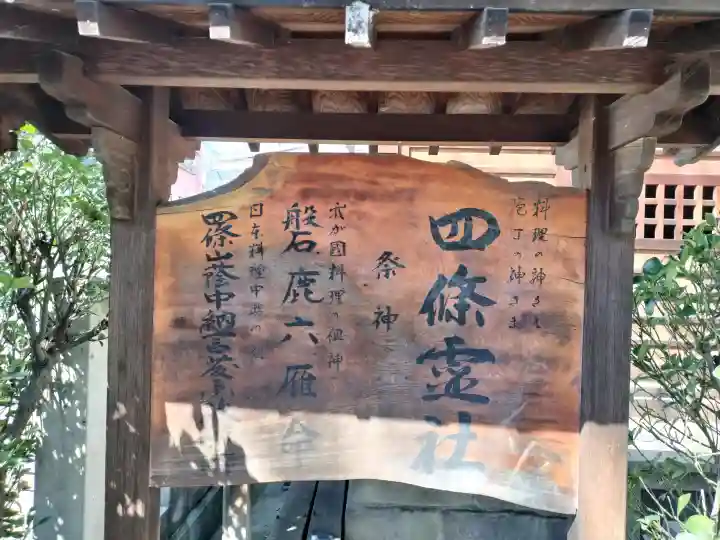 料理の神さま
庖丁の神さま
四條霊社
祭神
我が国料理の祖神
磐鹿六雁命
日本料理中興の祖
四條山蔭中納言藤原